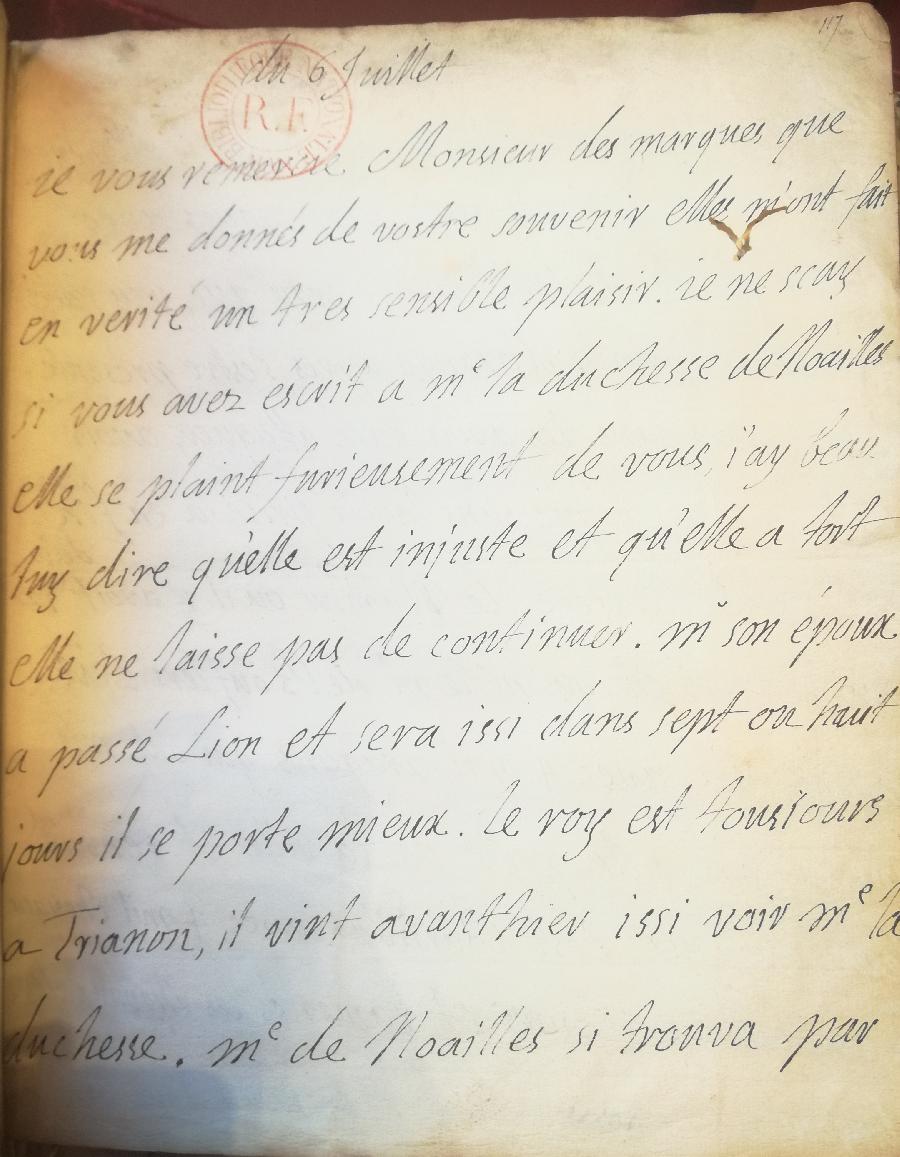 117
du 6 Juillet
BIBLIOTHEQUE NATIONALE
R.F.
ie vous remercie Monsieur des marques que
vous me donnés de vostre souvenir elles m'ont fait
en verité un tres sensible plaisir. ie ne scay
si vous avez escrit a me la duchesse de Noailles
elle se plaint furieusement de vous, i'ay beau
luy dire qu'elle est injuste et qu'elle a tort
elle ne laisse pas de continuer. mr son époux
a passé Lion et sera issi dans sept ou huit
jours il se porte mieux. le roy est tousiours
a Trianon, il vint avanthier issi voir me la
duchesse. me de Noailles si trouva par